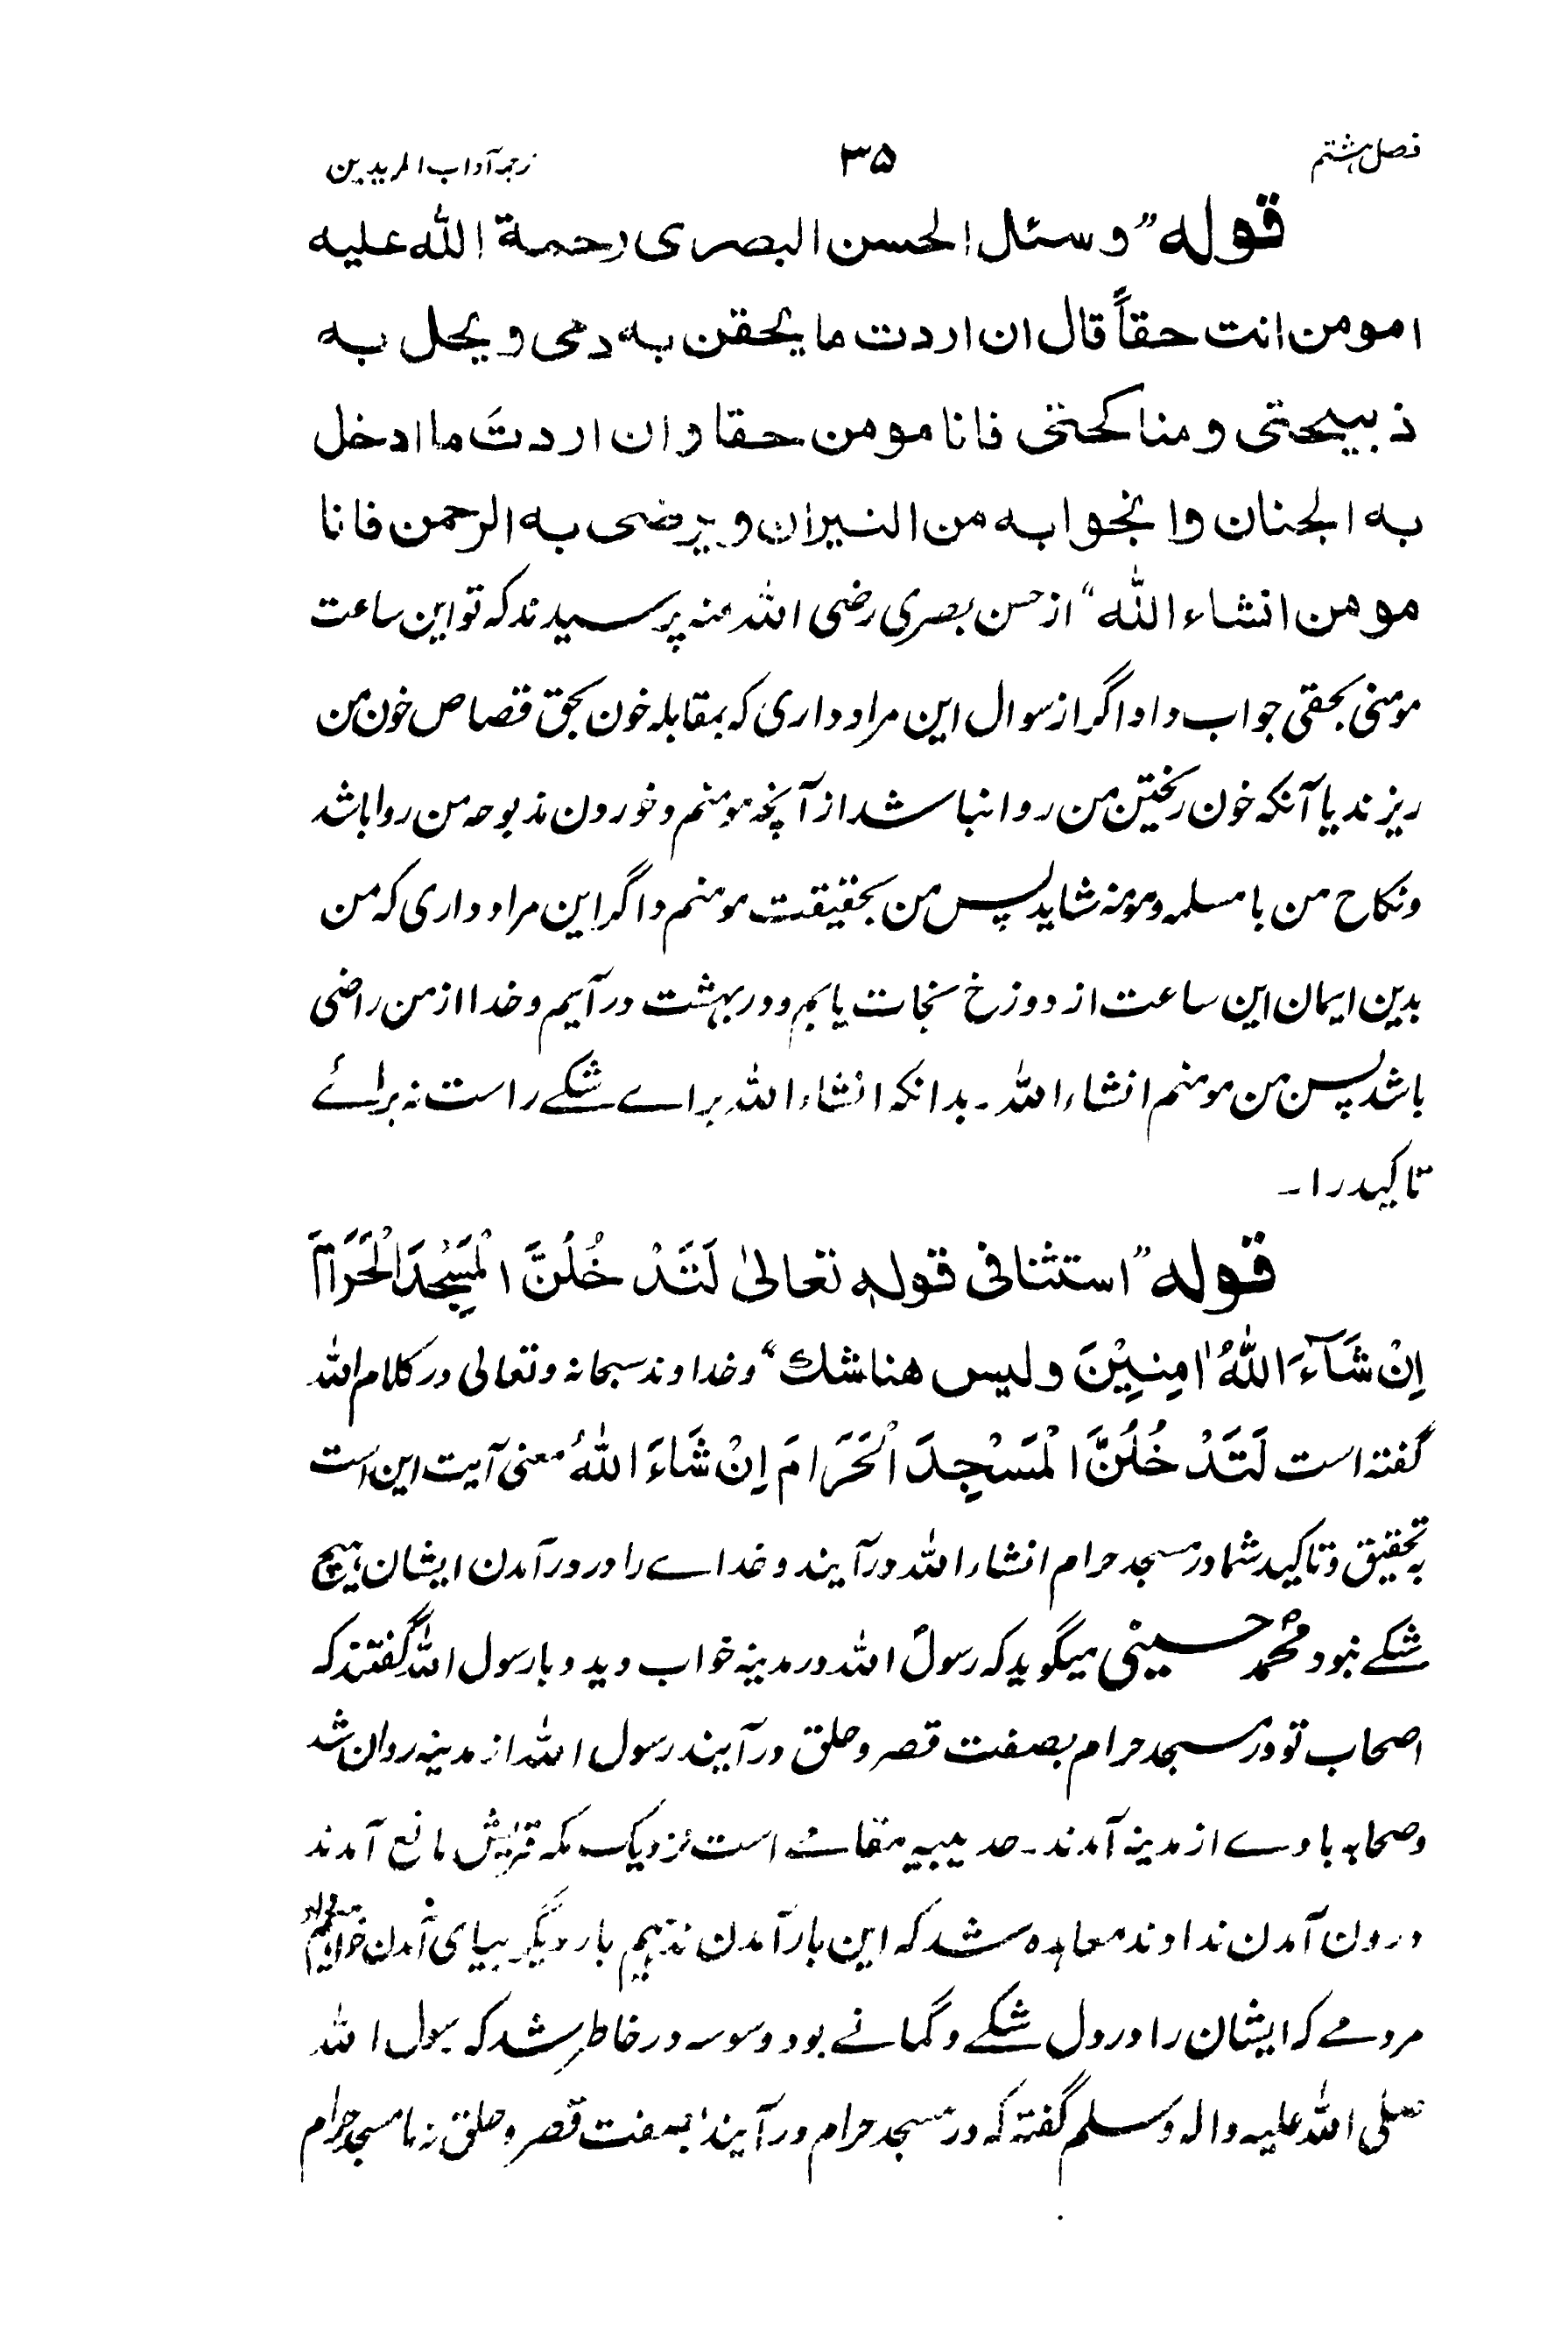 فصل ہشتم ۳۵ ترجمہ آداب المریدین
قوله ”وسئل الحسن البصری رحمة الله علیه
امومن انت حقاً قال ان اردت ما یحقن به دمی و یحل به
ذبیحتی و مناکحتی فانا مومن حقا و ان اردتَ ما ادخل
به الجنان وا نجوا به من النیران و یرضی به الرحمن فانا
مومن انشاء الله“ از حسن بصری رضی الله عنه پرسیدند که تو این ساعت
مومنی بحقی جواب داد اگر از سوال این مراد داری که بمقابله خون بحق قصاص خون من
ریزند یا آنکه خون ریختن من روا نباشد از آنچه مومنم و خوردن مذبوحه من روا باشد
و نکاح من با مسلمه و مومنه شاید پس من بحقیقت مومنم و اگر این مراد داری که من
بدین ایمان این ساعت از دوزخ نجات یابم و در بہشت در آیم و خدا از من راضی
باشد پس من مومنم انشاء الله ۔ بدانکه انشاء الله براے شکے راست نه برائے
تاکید را ۔
قوله ”استثنا فی قوله تعالیٰ لَتَدْخُلُنَّ الْمَسْجِدَ الْحَرَامَ
اِنْ شَآءَ اللّٰهُ اٰمِنِیْنَ ولیس هنا شك“ و خداوند سبحانه و تعالی در کلام الله
گفته است لَتَدْخُلُنَّ الْمَسْجِدَ الْحَرَامَ اِنْ شَاءَ اللّٰهُ معنی آیت این است
به تحقیق و تاکید شما در مسجد حرام انشاء الله در آیند و خداے را در در آمدن ایشان ہیچ
شکے نبود محمد حسینی میگوید که رسولؐ الله در مدینه خواب دید و با رسول الله گفتند که
اصحاب تو در مسجد حرام بصفت قصر و حلق در آیند رسول الله از مدینه روان شد
و صحابه با وے از مدینه آمدند ۔ حدیبیه مقامے است نزدیک مکه قریش مانع آمدند
درون آمدن ندادند معاہده شد که این بار آمدن ندہیم بار دیگر بیای آمدن خواہیم
مردمے که ایشان را در دل شکے و گمانے بود وسوسه در خاطر شد که رسول الله
صلی الله علیه و اله و سلم گفته که در مسجد حرام در آیند بصفت قصر و حلق نه ما مسجد حرام